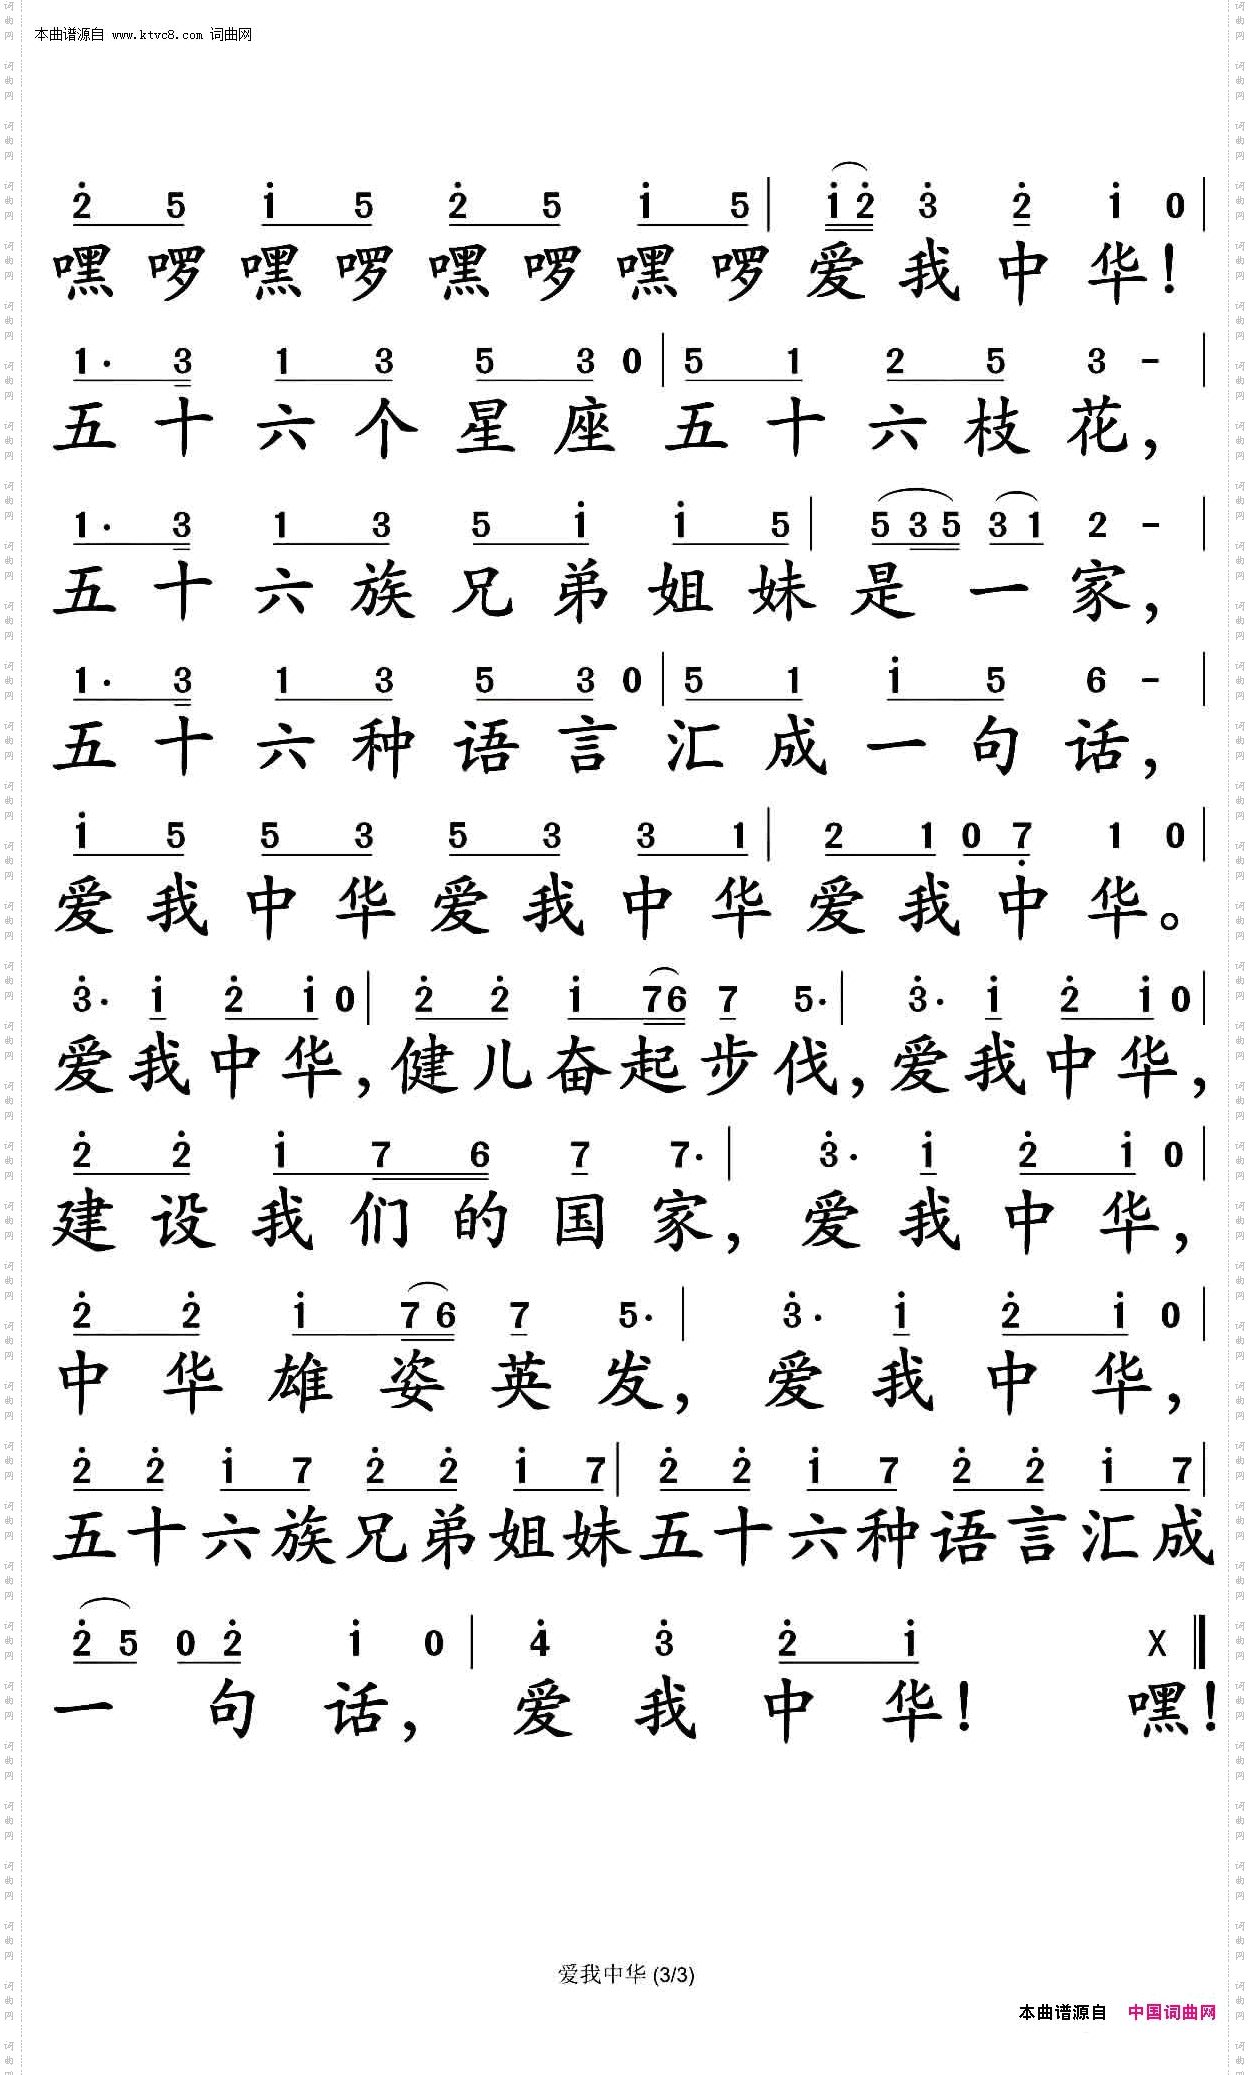 本曲谱源自 www.ktvc8.com 词曲网
2 5 1 5 2 5 1 5 | 1 2 3 2 1 0 |
嘿 啰 嘿 啰 嘿 啰 嘿 啰 爱 我 中 华！
1· 3 1 3 5 3 0 | 5 1 2 5 3 - |
五 十 六 个 星 座 五 十 六 枝 花，
1· 3 1 3 5 1 1 5 | 5 3 5 3 1 2 - |
五 十 六 族 兄 弟 姐 妹 是 一 家，
1· 3 1 3 5 3 0 | 5 1 1 5 6 - |
五 十 六 种 语 言 汇 成 一 句 话，
1 5 5 3 5 3 3 1 | 2 1 0 7 1 0 |
爱 我 中 华 爱 我 中 华 爱 我 中 华。
3· 1 2 1 0 | 2 2 1 7 6 7 5· | 3· 1 2 1 0 |
爱 我 中 华，健 儿 奋 起 步 伐，爱 我 中 华，
2 2 1 7 6 7 7· | 3· 1 2 1 0 |
建 设 我 们 的 国 家，爱 我 中 华，
2 2 1 7 6 7 5· | 3· 1 2 1 0 |
中 华 雄 姿 英 发，爱 我 中 华，
2 2 1 7 2 2 1 7 | 2 2 1 7 2 2 1 7 |
五 十 六 族 兄 弟 姐 妹 五 十 六 种 语 言 汇 成
2 5 0 2 1 0 | 4 3 2 1 X ‖
一 句 话，爱 我 中 华！ 嘿！
爱我中华 (3/3)
本曲谱源自 中国词曲网